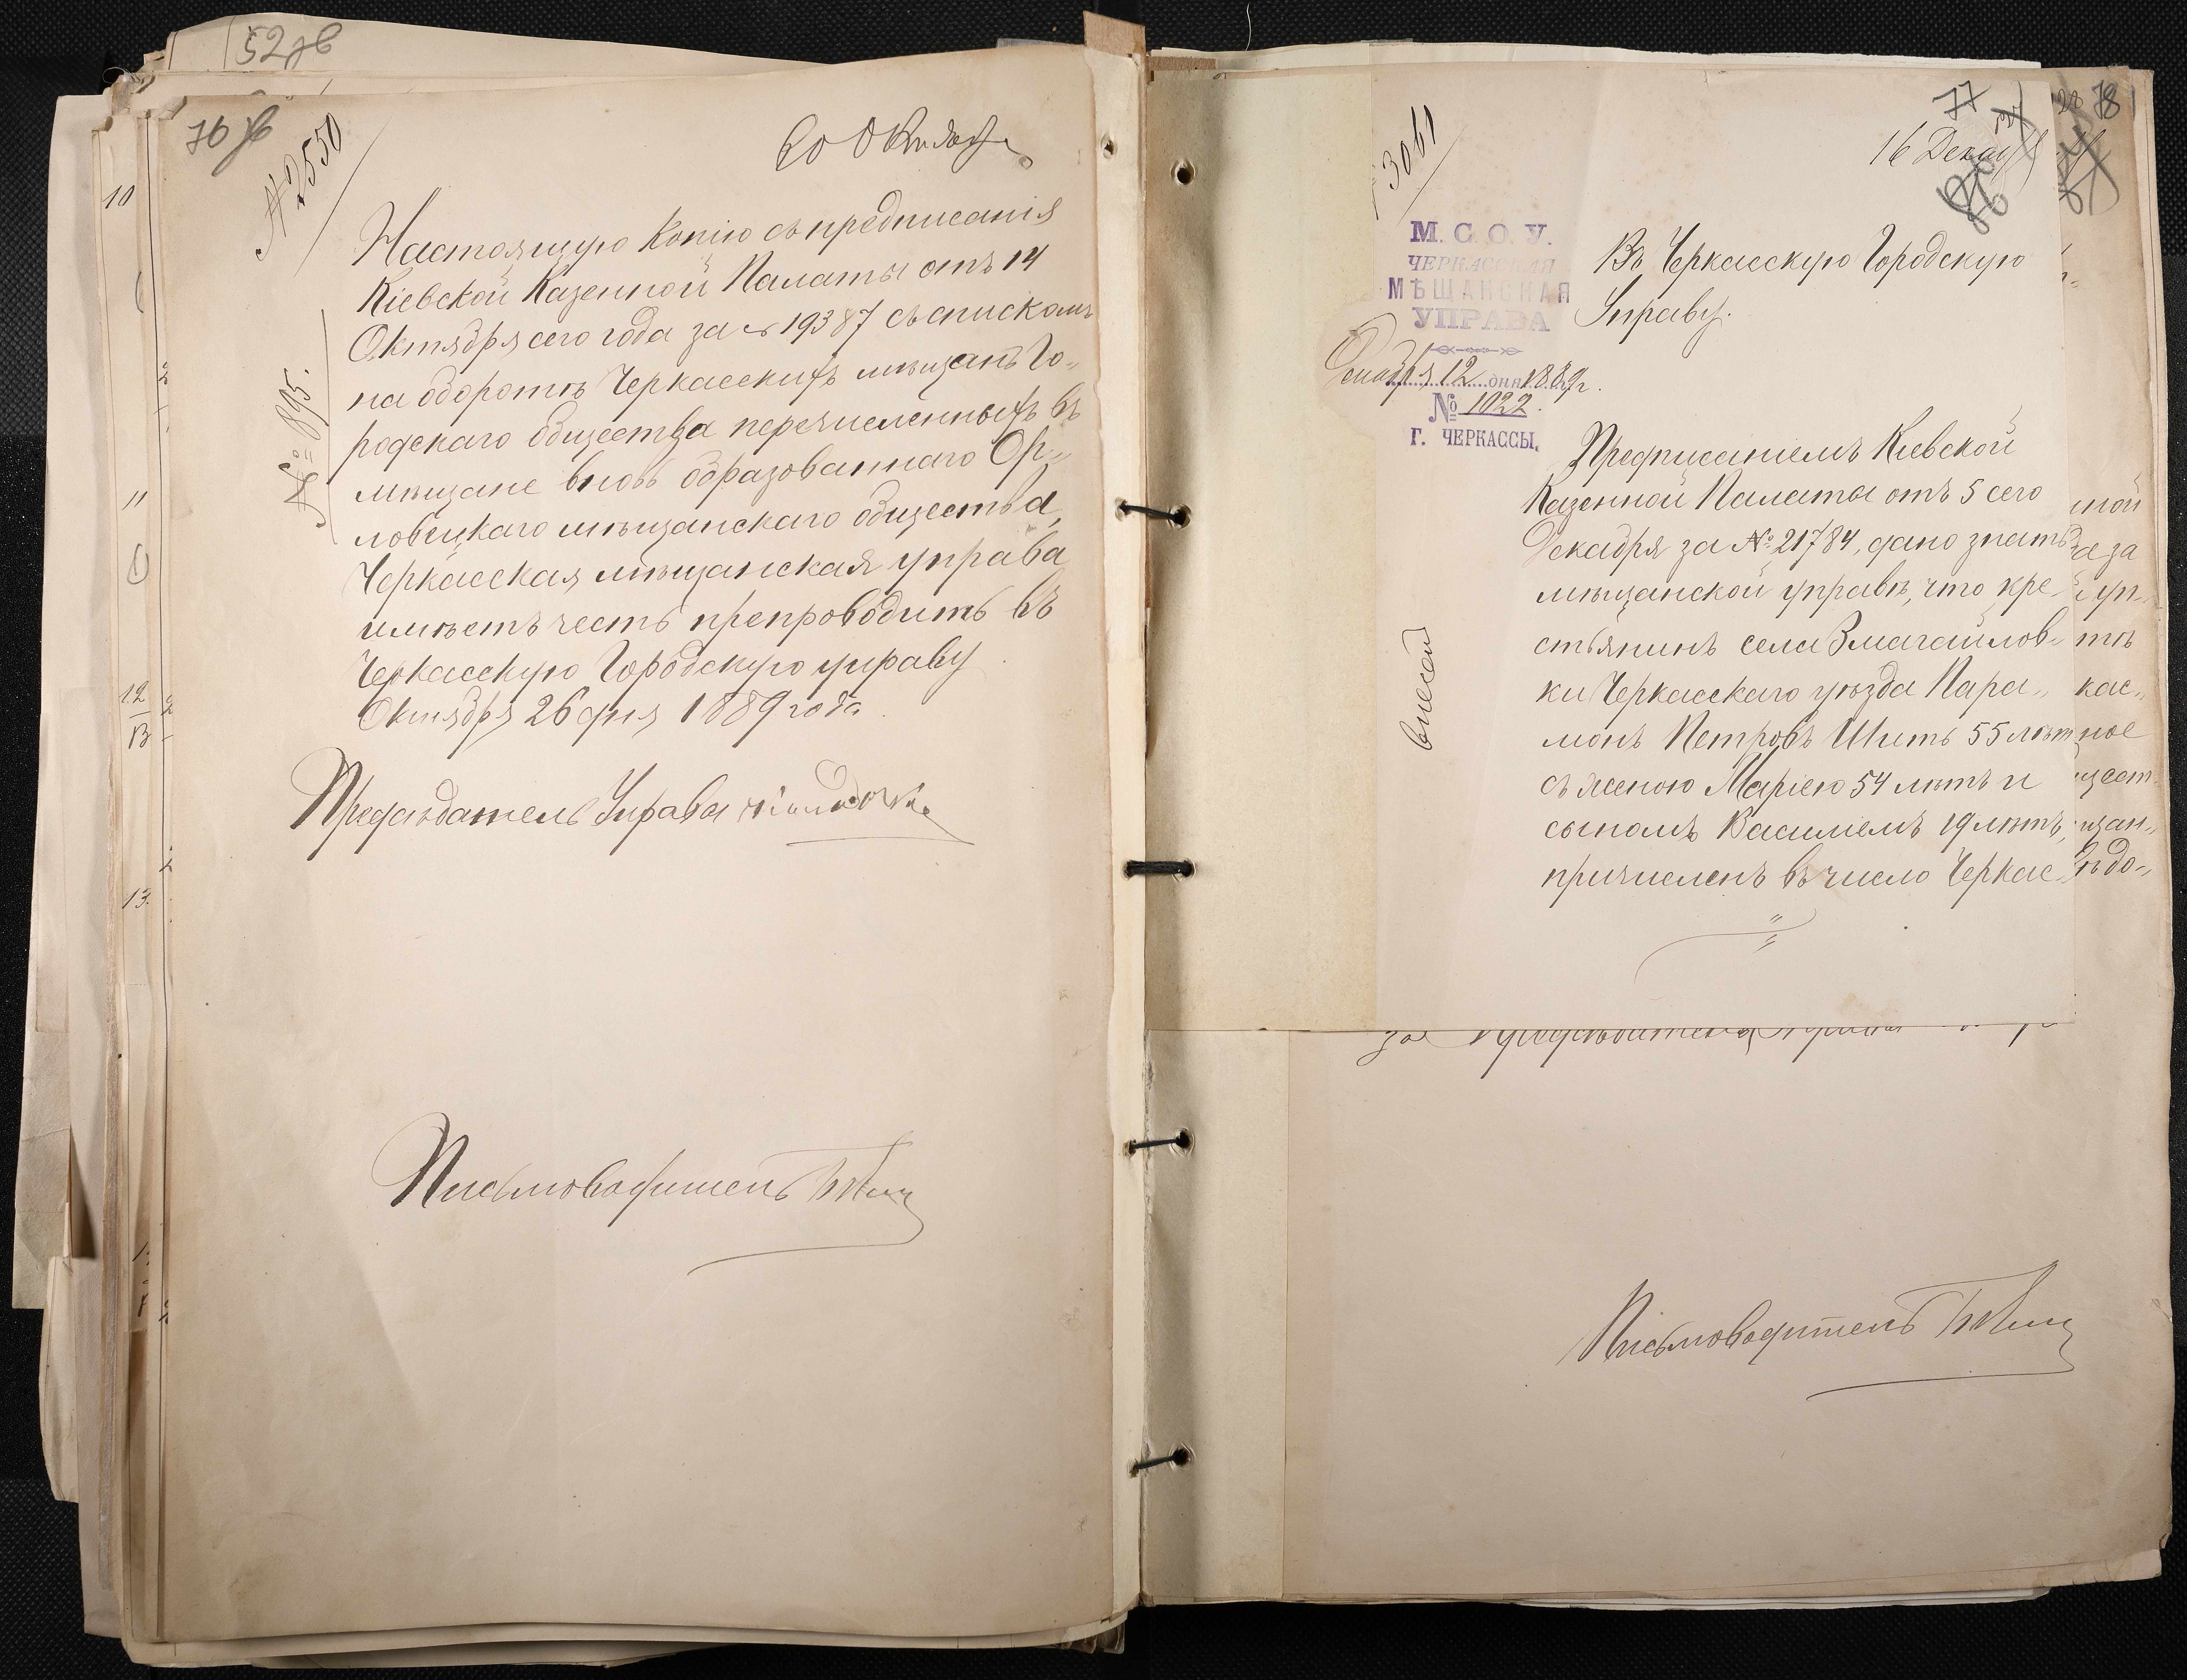 52 об
76 об
№ 2550
Октября
№ 895.
Настоящую копію съ предписанія
Кіевской Казенной Палаты отъ 14
Октября сего года за № 19387 съ спискомъ
на оборотѣ Черкасскихъ мѣщанъ Го-
родскаго общества перечисленныхъ въ
мѣщане вновь образованнаго Ор-
ловецкаго мѣщанскаго общества,
Черкасская мѣщанская управа
имѣетъ честь препроводить въ
Черкасскую Городскую управу
Октября 26 дня 1889 года.
Предсѣдатель Управы
Письмоводитель
10
11
12
13
77
78
3061
16 Декаб
М. С. О. У.
ЧЕРКАССКАЯ
МѢЩАНСКАЯ
УПРАВА
Декабря 12 дня 1889 г.
№ 1022.
Г. ЧЕРКАССЫ.
Въ Черкасскую Городскую
Управу.
внесен
Предписаніемъ Кіевской
Казенной Палаты отъ 5 сего
Декабря за № 21784, дано знать
мѣщанской управѣ, что кре-
стьянинъ села Змагайлов-
ки Черкасскаго уѣзда Пара-
монъ Петровъ Шить 55 лѣт
съ женою Маріею 54 лѣтъ и
сыномъ Василіемъ 19 лѣтъ,
причисленъ въ число Черкас-
за Предсѣдателя Управы
Письмоводитель